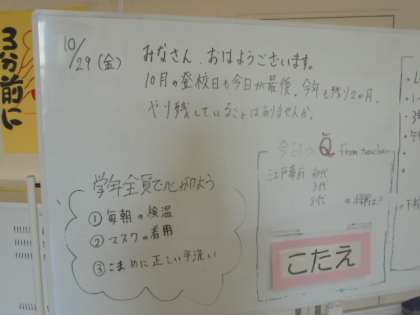 3分前に
10/29(金)
みなさん、おはようございます。
10月の登校日も今日が最後。今年も残り2か月。
やり残していることはありませんか。
今日のQ from teacher
江戸幕府 初代
3代
8代 の将軍は?
こたえ
学年全員で心がけよう
①毎朝の検温
②マスクの着用
③こまめに正しい手洗い